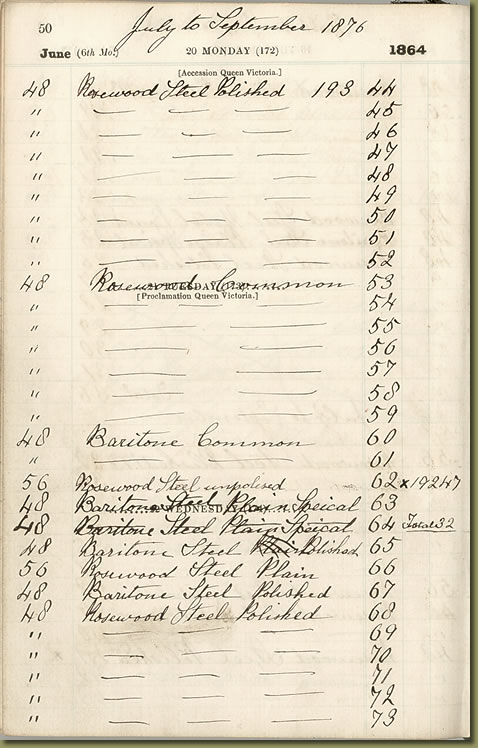 50 July to September 1876
June (6th Mo.) 20 MONDAY (172) 1864
[Accession Queen Victoria.]
48 Rosewood Steel Polished 193 44
" — — — 45
" — — — 46
" — — — 47
" — — — 48
" — — — 49
" — — — 50
" — — — 51
" — — — 52
48 Rosewood Common 53
TUESDAY
[Proclamation Queen Victoria.]
" — — 54
" — — 55
" — — 56
" — — 57
" — — 58
" — — 59
48 Baritone Common 60
" — — 61
56 Rosewood Steel unpolised 62 x 19247
48 Baritone Steel Plain Speical 63
WEDNESDAY
48 Baritone Steel Plain Speical 64 Total 32
48 Baritone Steel Plain Polished 65
56 Rosewood Steel Plain 66
48 Baritone Steel Polished 67
48 Rosewood Steel Polished 68
" — — — 69
" — — — 70
" — — — 71
" — — — 72
" — — — 73